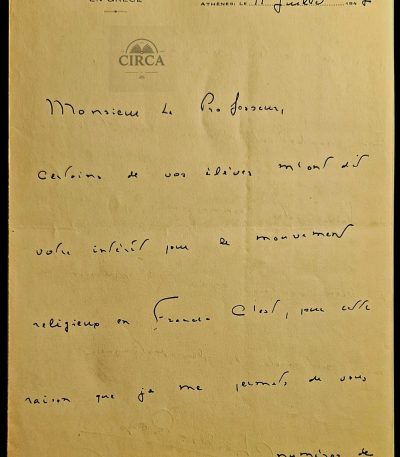 EN GRÈCE
ATHÈNES, LE 11 Juillet 194
CIRCA
Monsieur le Professeur,
Certains de vos élèves m'ont dit
votre intérêt pour le mouvement
religieux en France. C'est, pour cette
raison que je me permets de vous
numéros de